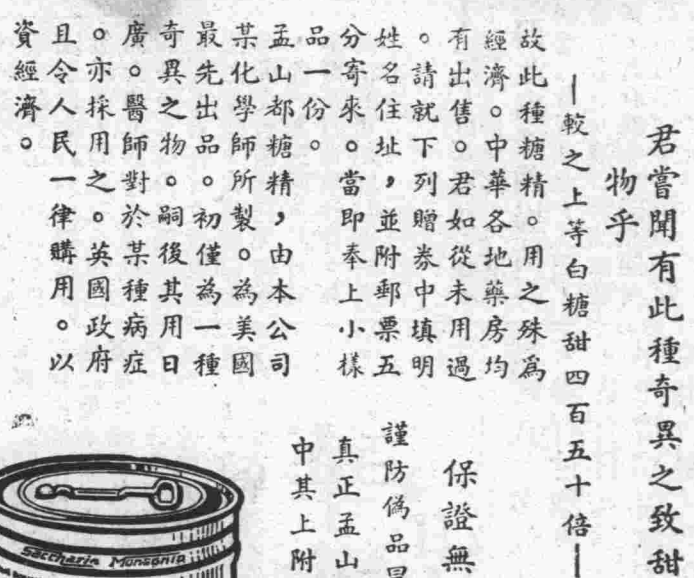 君嘗聞有此種奇異之致甜
物乎
—較之上等白糖甜四百五十倍—
故此種糖精。用之殊爲
經濟。中華各地藥房均
有出售。君如從未用過
。請就下列贈券中填明
姓名住址，並附郵票五
分寄來。當即奉上小樣
品一份。
孟山都糖精，由本公司
某化學師所製。為美國
最先出品。初僅為一種
奇異之物。嗣後其用日
廣。醫師對於某種病症
。亦採用之。英國政府
且令人民一律購用。以
資經濟。
保證無
謹防偽品
真正孟山
中其上附
Saccharin